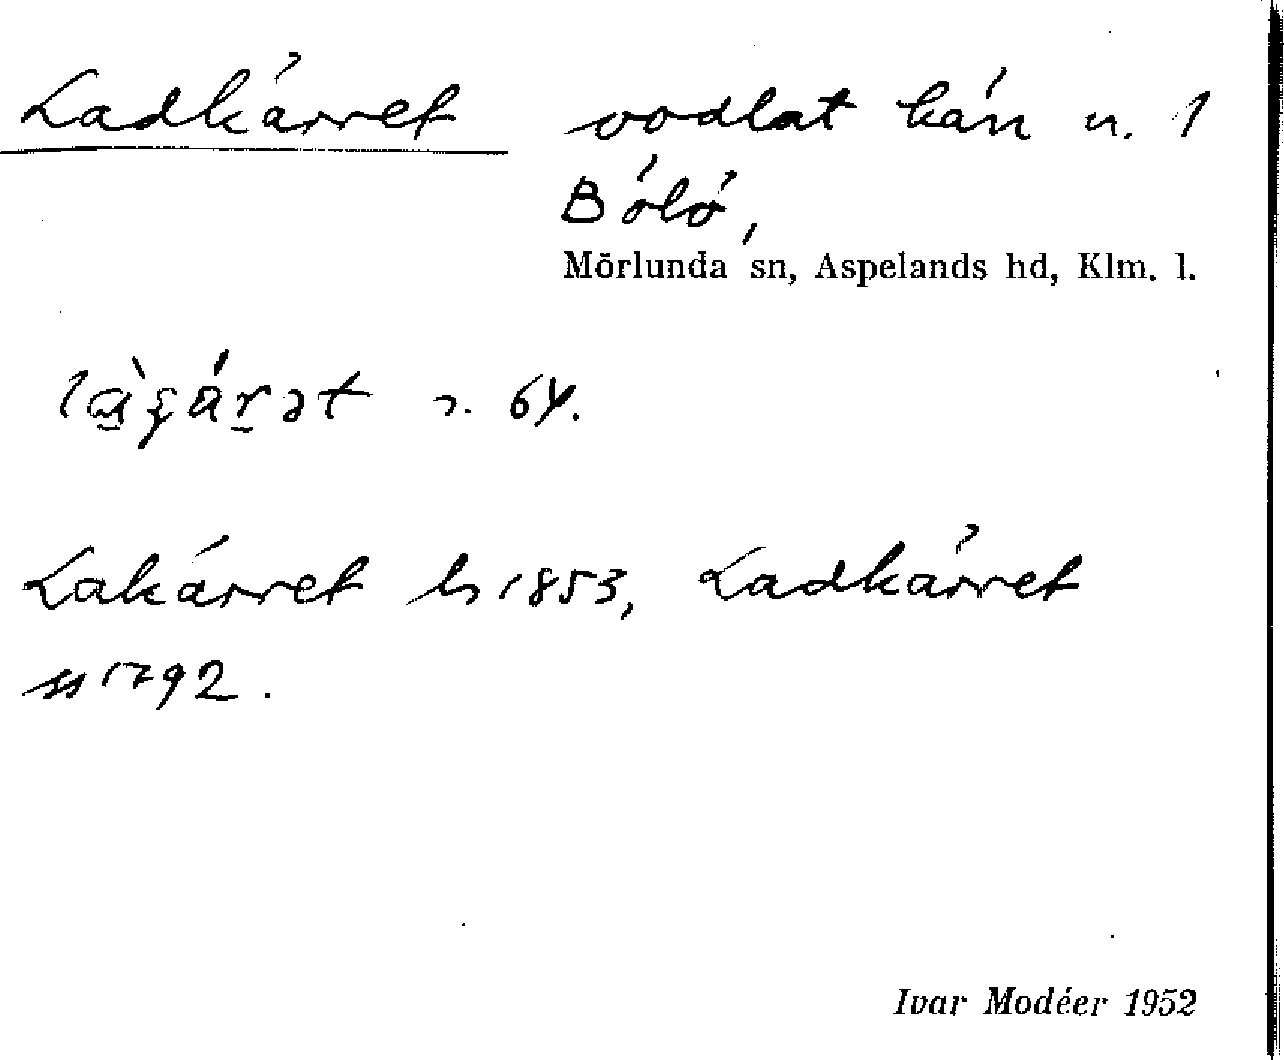 Ladkärret oodlat kärr n. 1
Bölö,
Mörlunda sn, Aspelands hd, Klm. l.
s. 64.
Lakärret ls 1853, Ladkärret
ss 1792.
Ivar Modéer 1952